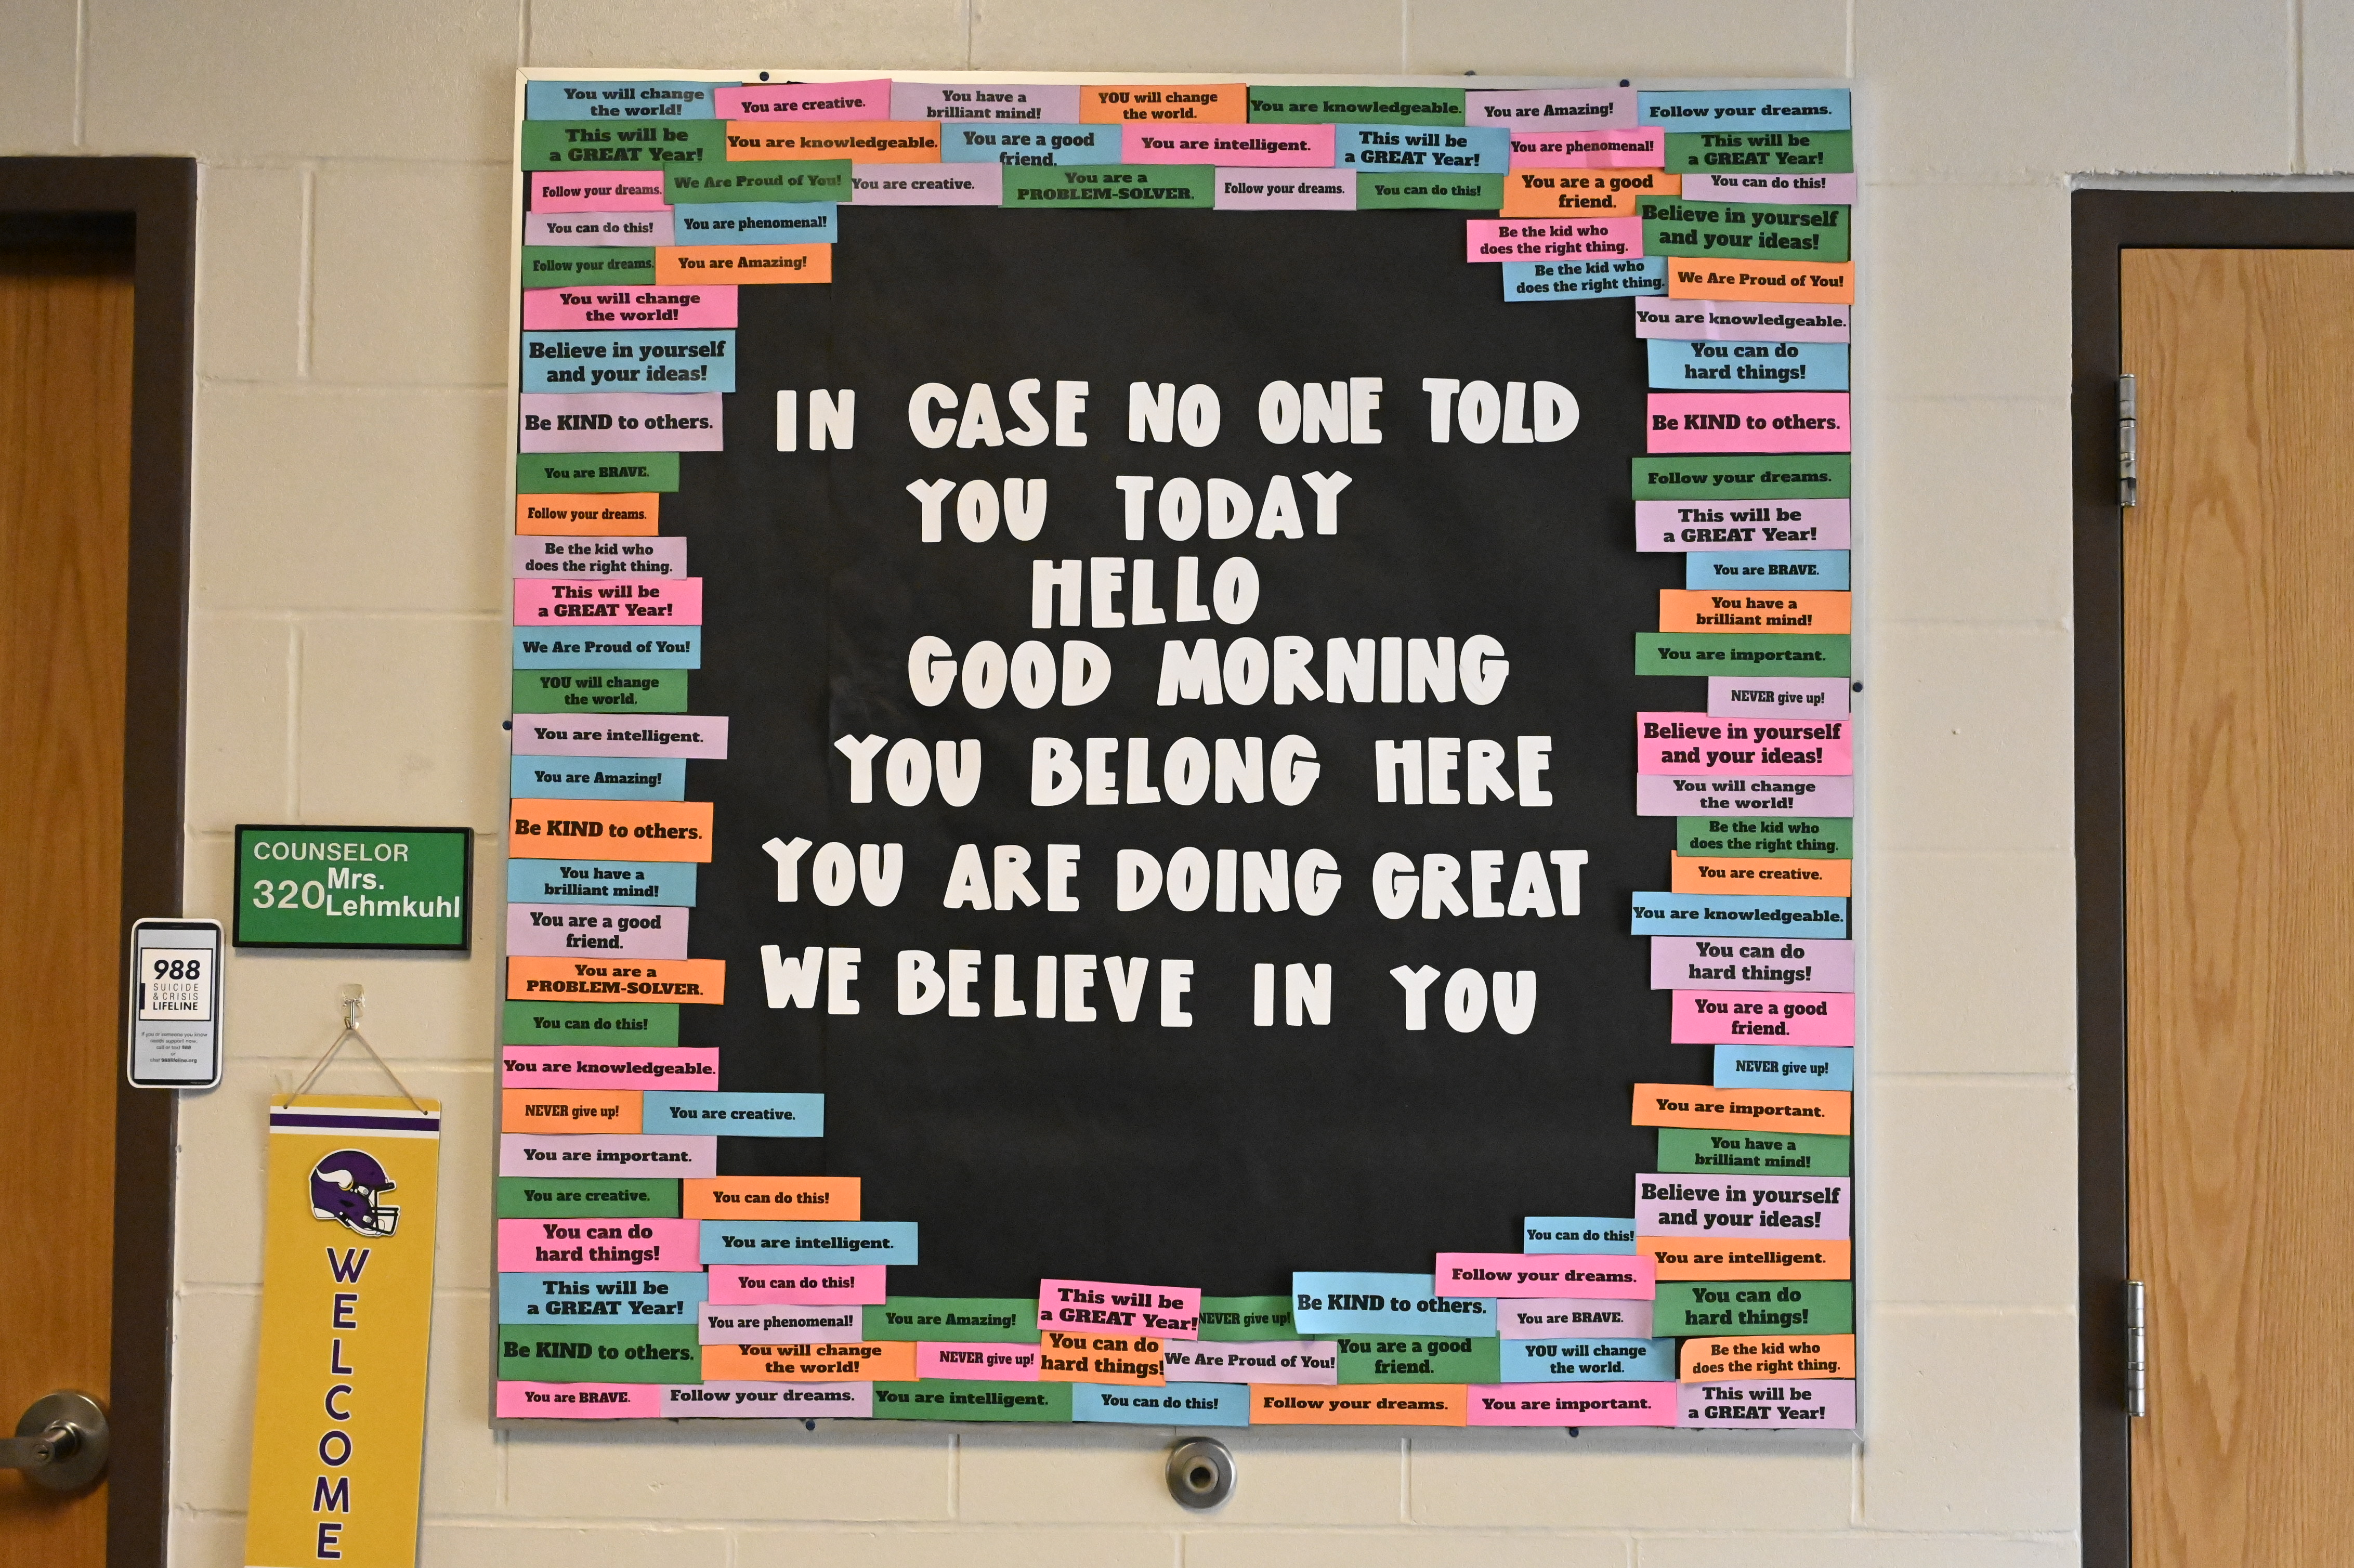 You will change
the world!
You are creative.
You have a
brilliant mind!
YOU will change
the world.
You are knowledgeable.
You are Amazing!
Follow your dreams.
This will be
a GREAT Year!
You are knowledgeable.
You are a good
friend.
You are intelligent.
This will be
a GREAT Year!
You are phenomenal!
This will be
a GREAT Year!
Follow your dreams.
We Are Proud of You!
You are creative.
You are a
PROBLEM-SOLVER.
Follow your dreams.
You can do this!
You are a good
friend.
You can do this!
You can do this!
You are phenomenal!
Be the kid who
does the right thing.
Believe in yourself
and your ideas!
Follow your dreams.
You are Amazing!
Be the kid who
does the right thing.
We Are Proud of You!
You will change
the world!
Believe in yourself
and your ideas!
Be KIND to others.
You are BRAVE.
Follow your dreams.
Be the kid who
does the right thing.
This will be
a GREAT Year!
We Are Proud of You!
YOU will change
the world.
You are intelligent.
You are Amazing!
Be KIND to others.
You have a
brilliant mind!
You are a good
friend.
You are a
PROBLEM-SOLVER.
You can do this!
You are knowledgeable.
NEVER give up!
You are creative.
You are important.
You are creative.
You can do this!
You can do
hard things!
You are intelligent.
IN CASE NO ONE TOLD
YOU TODAY
HELLO
GOOD MORNING
YOU BELONG HERE
YOU ARE DOING GREAT
WE BELIEVE IN YOU
You are knowledgeable.
You can do
hard things!
Be KIND to others.
Follow your dreams.
This will be
a GREAT Year!
You are BRAVE.
You have a
brilliant mind!
You are important.
NEVER give up!
Believe in yourself
and your ideas!
You will change
the world!
Be the kid who
does the right thing.
You are creative.
You are knowledgeable.
You can do
hard things!
You are a good
friend.
NEVER give up!
You are important.
You have a
brilliant mind!
Believe in yourself
and your ideas!
You can do this!
You are intelligent.
Follow your dreams.
This will be
a GREAT Year!
You can do this!
You are phenomenal!
You are Amazing!
This will be
a GREAT Year!
NEVER give up!
Be KIND to others.
You are BRAVE.
You can do
hard things!
Be KIND to others.
You will change
the world!
NEVER give up!
You can do
hard things!
We Are Proud of You!
You are a good
friend.
YOU will change
the world.
Be the kid who
does the right thing.
You are BRAVE.
Follow your dreams.
You are intelligent.
You can do this!
Follow your dreams.
You are important.
This will be
a GREAT Year!
COUNSELOR
320 Mrs.
Lehmkuhl
988
SUICIDE
& CRISIS
LIFELINE
If you or someone you know
needs support now,
call or text 988
or
chat 988lifeline.org
WELCOME